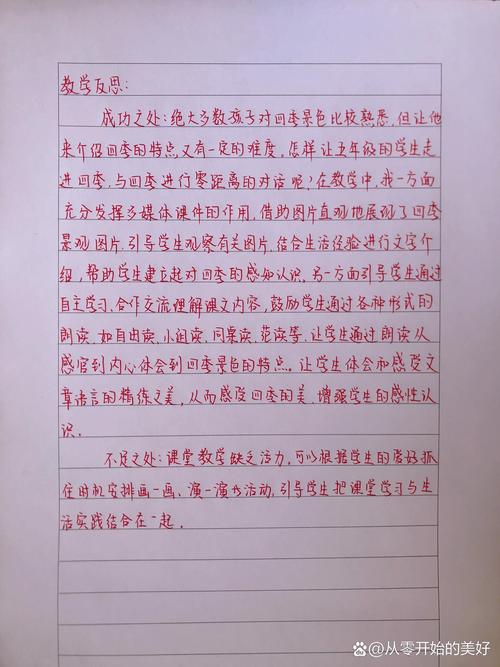 教学反思:
成功之处:绝大多数孩子对四季景色比较熟悉,但让他
来介绍四季的特点,又有一定的难度。怎样让五年级的学生走
进四季,与四季进行零距离的对话呢?在教学中,我一方面
充分发挥多媒体课件的作用,借助图片直观地展现了四季
景观图片,引导学生观察有关图片,结合生活经验进行文字介
绍,帮助学生建立起对四季的感知认识。另一方面引导学生通过
自主学习、合作交流理解课文内容,鼓励学生通过各种形式的
朗读,如自由读、小组读、同桌读、范读等,让学生通过朗读从
感官到内心体会到四季景色的特点。让学生体会和感受文
章语言的精练之美,从而感受四季的美,增强学生的感性认
识。
不足之处:课堂教学缺乏活力,可以根据学生的爱好抓
住时机安排画一画、演一演等活动,引导学生把课堂学习与生
活实践结合在一起。
@从零开始的美好